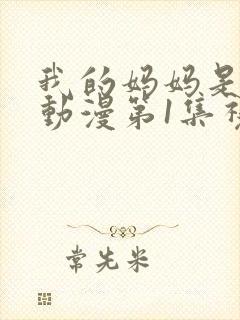 我的妈妈是
動漫第1集
常先米